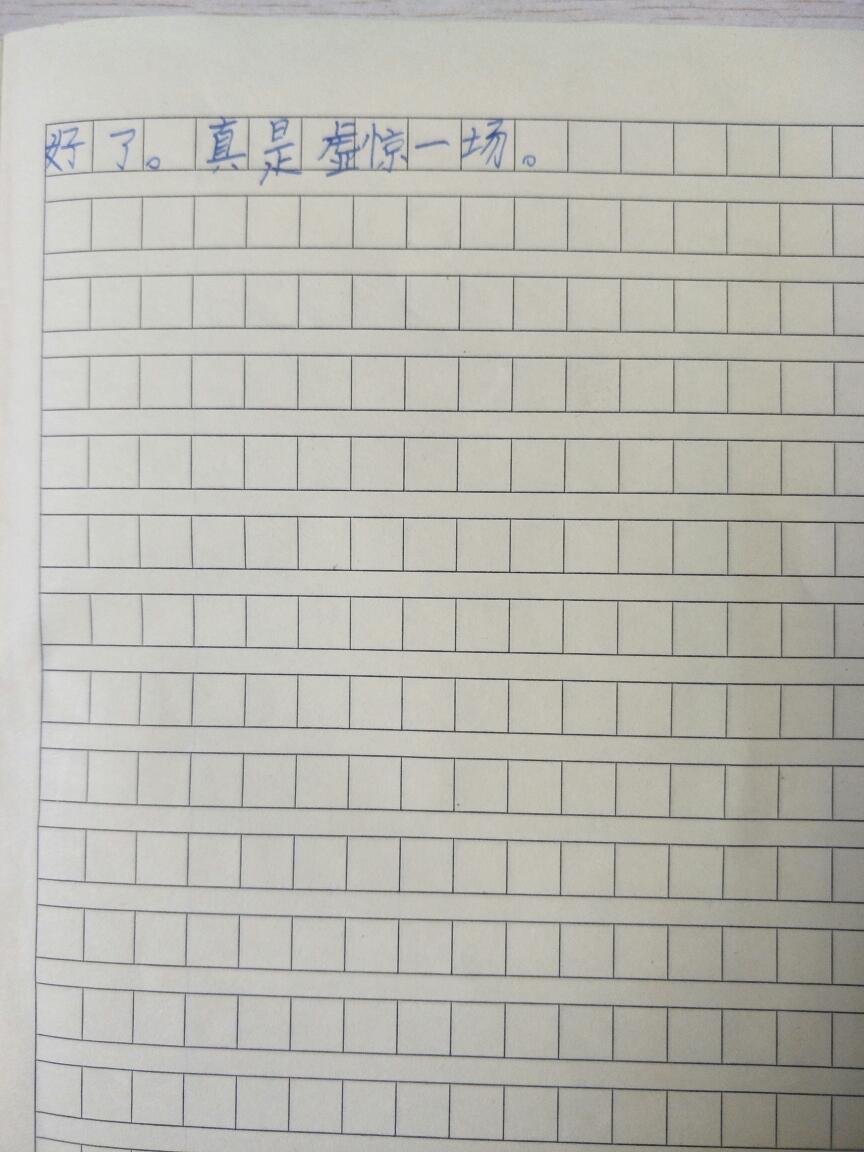 好了。真是虚惊一场。